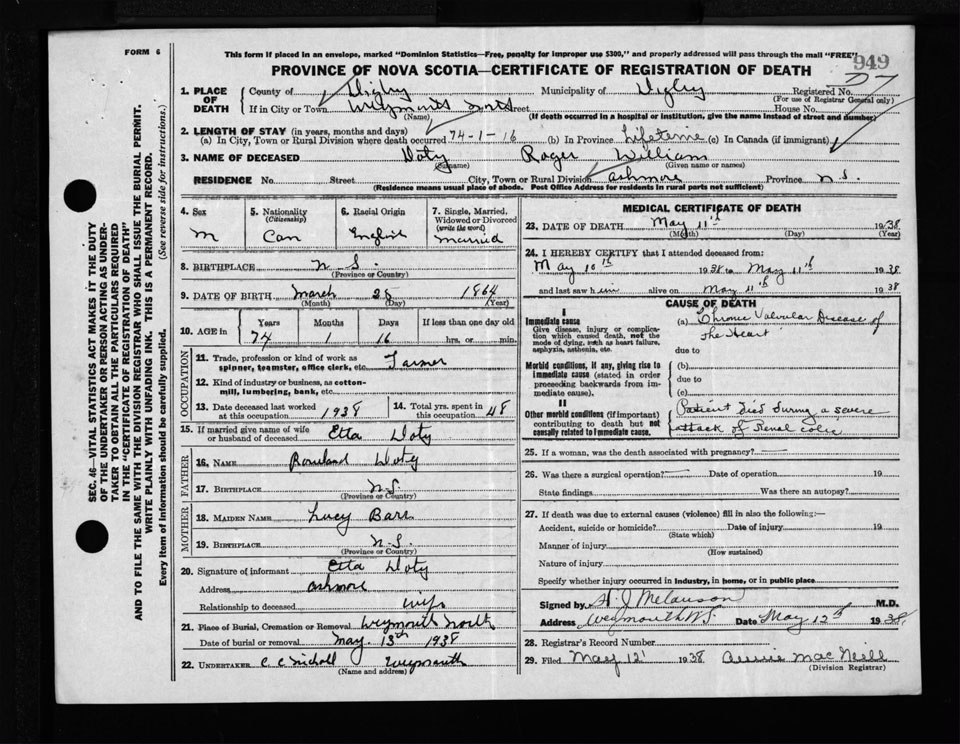 FORM 6
This form if placed in an envelope, marked "Dominion Statistics—Free, penalty for improper use $300," and properly addressed will pass through the mail "FREE"
949
PROVINCE OF NOVA SCOTIA—CERTIFICATE OF REGISTRATION OF DEATH
1. PLACE OF DEATH
County of Digby Municipality of Digby Registered No.
(For use of Registrar General only)
If in City or Town Weymouth North Street House No.
(Name) (If death occurred in a hospital or institution, give the name instead of street and number)
2. LENGTH OF STAY (in years, months and days)
(a) In City, Town or Rural Division where death occurred 74-1-16 (b) In Province Lifetime (c) In Canada (if immigrant)
3. NAME OF DECEASED Doty Roger William
(Surname) (Given name or names)
RESIDENCE No. Street City, Town or Rural Division Ashmore Province N.S.
(Residence means usual place of abode. Post Office Address for residents in rural parts not sufficient)
4. Sex 5. Nationality (Citizenship) 6. Racial Origin 7. Single, Married, Widowed or Divorced (write the word)
M Can English Married
8. BIRTHPLACE N.S.
(Province or Country)
9. DATE OF BIRTH March 25 1864
(Month) (Day) (Year)
10. AGE in Years Months Days If less than one day old
74 1 16 hrs. or min.
OCCUPATION
11. Trade, profession or kind of work as spinner, teamster, office clerk, etc. Farmer
12. Kind of industry or business, as cotton-mill, lumbering, bank, etc.
13. Date deceased last worked at this occupation 1938 14. Total yrs. spent in this occupation 48
15. If married give name of wife or husband of deceased Etta Doty
FATHER
16. NAME Doty
17. BIRTHPLACE N.S.
(Province or Country)
MOTHER
18. MAIDEN NAME Lucy Barr
19. BIRTHPLACE N.S.
(Province or Country)
20. Signature of informant Etta Doty
Address Ashmore
Relationship to deceased wife
21. Place of Burial, Cremation or Removal Weymouth North
Date of burial or removal May 13th 1938
22. UNDERTAKER C. C. Nicholl Weymouth
(Name and address)
MEDICAL CERTIFICATE OF DEATH
23. DATE OF DEATH May 11th 1938
(Month) (Day) (Year)
24. I HEREBY CERTIFY that I attended deceased from:
May 10th 1938 to May 11th 1938
and last saw him alive on May 11th 1938
CAUSE OF DEATH
I
Immediate cause (a) Chronic Valvular Disease of
Give disease, injury or complication which caused death, not the mode of dying, such as heart failure, asphyxia, asthenia, etc. The Heart
due to
Morbid conditions, if any, giving rise to immediate cause (stated in order proceeding backwards from immediate cause). (b)
due to
(c)
II
Other morbid conditions (if important) contributing to death but not causally related to immediate cause. Patient died during a severe
attack of renal colic
25. If a woman, was the death associated with pregnancy?
26. Was there a surgical operation? Date of operation 19
State findings Was there an autopsy?
27. If death was due to external causes (violence) fill in also the following:—
Accident, suicide or homicide? Date of injury 19
(State which)
Manner of injury
(How sustained)
Nature of injury
Specify whether injury occurred in industry, in home, or in public place
Signed by H. J. Melanson M.D.
Address Weymouth N.S. Date May 12th 1938
28. Registrar's Record Number
29. Filed May 12 1938 Annie MacNeill
(Division Registrar)
SEC. 46—VITAL STATISTICS ACT MAKES IT THE DUTY
OF THE UNDERTAKER OR PERSON ACTING AS UNDER-
TAKER TO OBTAIN ALL THE PARTICULARS REQUIRED
IN THE "CERTIFICATE OF REGISTRATION OF DEATH"
AND TO FILE THE SAME WITH THE DIVISION REGISTRAR WHO SHALL ISSUE THE BURIAL PERMIT.
WRITE PLAINLY WITH UNFADING INK. THIS IS A PERMANENT RECORD.
Every item of information should be carefully supplied. (See reverse side for instructions.)